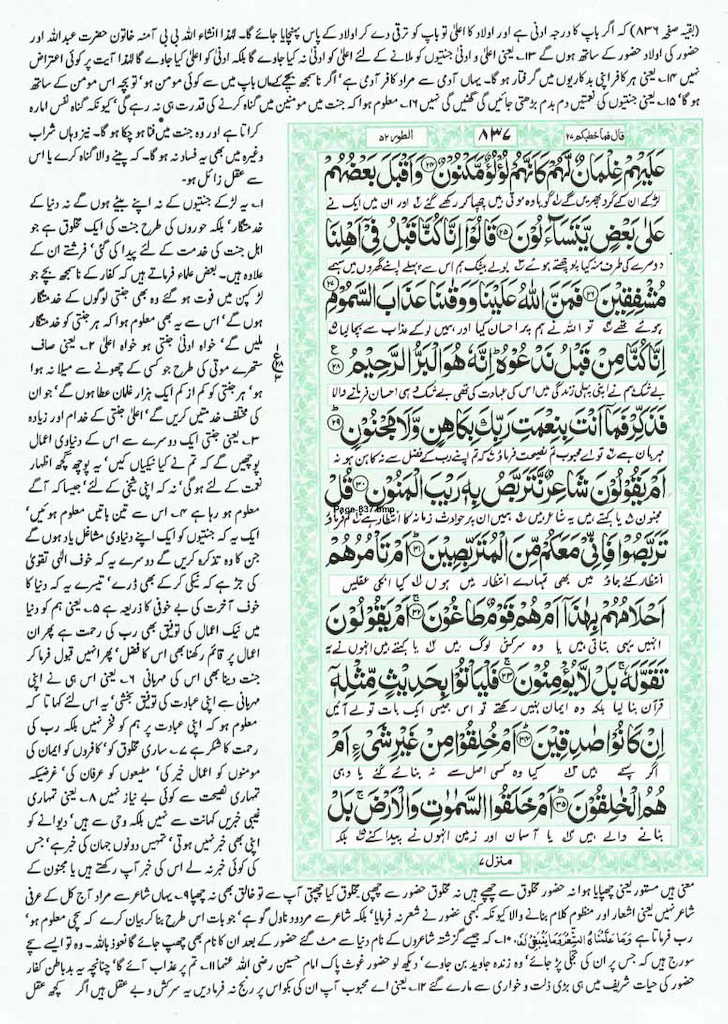 (بقیہ صفحہ ۸۳۶) کہ اگر باپ کا درجہ ادنی ہے اور اولاد کا اعلیٰ تو باپ کو ترقی دے کر اولاد کے پاس پہنچایا جائے گا۔ لہٰذا انشاء اللہ بی بی آمنہ خاتون حضرت عبداللہ اور
حضور کی اولاد حضور کے ساتھ ہوں گے ۱۳۔ یعنی اعلیٰ و ادنیٰ جنتیوں کو ملانے کے لئے اعلیٰ کو ادنیٰ نہ کیا جاوے گا بلکہ ادنیٰ کو اعلیٰ کیا جاوے گا لہٰذا آیت پر کوئی اعتراض
نہیں ۱۴۔ یعنی ہر کافر اپنی بدکاریوں میں گرفتار ہو گا۔ یہاں آدمی سے مراد کافر آدمی ہے' اگر ناسمجھ بچے کے ماں باپ میں سے کوئی مومن ہو' تو بچہ اس مومن کے ساتھ
ہو گا' ۱۵۔ یعنی جنتیوں کی نعمتیں دم بدم بڑھتی جائیں گی گھٹیں گی نہیں ۱۶۔ معلوم ہوا کہ جنت میں مومنین میں گناہ کرنے کی قدرت ہی نہ رہے گی' کیونکہ گناہ نفس امارہ
قال فما خطبکم ۲۷ ۸۳۷ الطور ۵۲
عَلَيْهِمْ غِلْمَانٌ لَّهُمْ كَأَنَّهُمْ لُؤْلُؤٌ مَّكْنُونٌ ۝۲۴ وَأَقْبَلَ بَعْضُهُمْ
لڑکے ان کے گرد پھریں گے گویا وہ موتی ہیں چھپا کر رکھے گئے اور ان میں ایک نے
عَلَىٰ بَعْضٍ يَتَسَاءَلُونَ ۝۲۵ قَالُوا إِنَّا كُنَّا قَبْلُ فِي أَهْلِنَا
دوسرے کی طرف منہ کیا پوچھتے ہوئے بولے بیشک ہم اس سے پہلے اپنے گھروں میں سہمے
مُشْفِقِينَ ۝۲۶ فَمَنَّ اللَّهُ عَلَيْنَا وَوَقَانَا عَذَابَ السَّمُومِ ۝۲۷
ہوئے تھے تو اللہ نے ہم پر احسان کیا اور ہمیں لو کے عذاب سے بچا لیا
إِنَّا كُنَّا مِن قَبْلُ نَدْعُوهُ إِنَّهُ هُوَ الْبَرُّ الرَّحِيمُ ۝۲۸
بے شک ہم نے اپنی پہلی زندگی میں اس کی عبادت کی تھی بے شک وہی احسان فرمانے والا
فَذَكِّرْ فَمَا أَنتَ بِنِعْمَتِ رَبِّكَ بِكَاهِنٍ وَلَا مَجْنُونٍ ۝۲۹
مہربان ہے تو اے محبوب تم نصیحت فرماؤ کہ تم اپنے رب کے فضل سے نہ کاہن ہو نہ
أَمْ يَقُولُونَ شَاعِرٌ نَّتَرَبَّصُ بِهِ رَيْبَ الْمَنُونِ ۝۳۰ قُلْ
مجنون یا کہتے ہیں یہ شاعر ہیں ہمیں ان پر حوادث زمانہ کا انتظار ہے تم فرماؤ
Page 837.bmp
تَرَبَّصُوا فَإِنِّي مَعَكُم مِّنَ الْمُتَرَبِّصِينَ ۝۳۱ أَمْ تَأْمُرُهُمْ
انتظار کئے جاؤ میں بھی تمہارے انتظار میں ہوں کیا انکی عقلیں
أَحْلَامُهُم بِهَٰذَا أَمْ هُمْ قَوْمٌ طَاغُونَ ۝۳۲ أَمْ يَقُولُونَ
انہیں یہی بتاتی ہیں یا وہ سرکش لوگ ہیں یا کہتے ہیں انہوں نے یہ
تَقَوَّلَهُ بَل لَّا يُؤْمِنُونَ ۝۳۳ فَلْيَأْتُوا بِحَدِيثٍ مِّثْلِهِ
قرآن بنا لیا بلکہ وہ ایمان نہیں رکھتے تو اس جیسی ایک بات تو لے آئیں
إِن كَانُوا صَادِقِينَ ۝۳۴ أَمْ خُلِقُوا مِنْ غَيْرِ شَيْءٍ أَمْ
اگر سچے ہیں کیا وہ کسی اصل سے نہ بنائے گئے یا وہی
هُمُ الْخَالِقُونَ ۝۳۵ أَمْ خَلَقُوا السَّمَاوَاتِ وَالْأَرْضَ بَل
بنانے والے ہیں یا آسمان اور زمین انہوں نے پیدا کئے بلکہ
منزل ۷
کراتا ہے اور وہ جنت میں فنا ہو چکا ہو گا۔ نیز وہاں شراب
وغیرہ میں بھی یہ فساد نہ ہو گا۔ کہ پینے والا گناہ کرے یا اس
سے عقل زائل ہو۔
۱۔ یہ لڑکے جنتیوں کے نہ اپنے بیٹے ہوں گے نہ دنیا کے
خدمتگار' بلکہ حوروں کی طرح جنت کی ایک مخلوق ہے جو
اہل جنت کی خدمت کے لئے پیدا کی گئی' فرشتے ان کے
علاوہ ہیں۔ بعض علماء فرماتے ہیں کہ کفار کے ناسمجھ بچے جو
لڑکپن میں فوت ہو گئے وہ بھی جنتی لوگوں کے خدمتگار
ہوں گے' اس سے یہ بھی معلوم ہوا کہ ہر جنتی کو خدمتگار
ملیں گے' خواہ ادنیٰ جنتی ہو خواہ اعلیٰ ۲۔ یعنی صاف
ستھرے موتی کی طرح جو کسی کے چھونے سے میلا نہ ہوا
ہو' ہر جنتی کو کم از کم ایک ہزار غلمان عطا ہوں گے' جو ان
کی مختلف خدمتیں کریں گے' اعلیٰ جنتی کے خدام اور زیادہ
۳۔ یعنی جنتی ایک دوسرے سے اس کے دنیاوی اعمال
پوچھیں گے کہ تم نے کیا نیکیاں کیں' یہ پوچھ گچھ اظہار
نعمت کے لئے ہو گی' نہ کہ اپنی شیخی کے لئے' جیسا کہ آگے
معلوم ہو رہا ہے ۴۔ اس سے تین باتیں معلوم ہوئیں'
ایک یہ کہ جنتیوں کو اپنے دنیاوی مشاغل یاد ہوں گے
جن کا وہ تذکرہ کریں گے دوسرے یہ کہ خوف الٰہی تقویٰ
کی جڑ ہے کہ نیکی کرکے بھی ڈرے' تیسرے یہ کہ دنیا کا
خوف آخرت کی بے خوفی کا ذریعہ ہے ۵۔ یعنی ہم کو دنیا
میں نیک اعمال کی توفیق بھی رب کی رحمت ہے پھر ان
اعمال پر قائم رکھنا بھی اس کا فضل' پھر انہیں قبول فرما کر
جنت دینا بھی اس کی مہربانی ۶۔ یعنی اس ہی نے اپنی
مہربانی سے اپنی عبادت کی توفیق بخشی' یہ اس لئے کہا تا کہ
معلوم ہو کہ اپنی عبادت پر ہم کو فخر نہیں بلکہ رب کی
رحمت کا شکر ہے ۷۔ ساری مخلوق کو' کافروں کو ایمان کی
مومنوں کو اعمال خیر کی' مطیعوں کو عرفان کی' غرضیکہ
تمہاری نصیحت سے کوئی بے نیاز نہیں ۸۔ یعنی تمہاری
غیبی خبریں کہانت سے نہیں بلکہ وحی سے ہیں' دیوانے کو
اپنی بھی خبر نہیں ہوتی' تمہیں دونوں جہان کی خبر ہے' جس
کی کوئی خبر نہ لے اس کی خبر آپ رکھتے ہیں یا مجنون کے
معنی ہیں مستور یعنی چھپایا ہوا نہ حضور مخلوق سے چھپے ہیں نہ مخلوق حضور سے چھپی مخلوق کیا چھپتی آپ سے تو خالق بھی نہ چھپا ۹۔ یہاں شاعر سے مراد آج کل کے عرفی
شاعر نہیں یعنی اشعار اور منظوم کلام بنانے والا کیونکہ کبھی حضور نے شعر نہ فرمایا' بلکہ شاعر سے مردود ناول گو ہے' جو بات اس طرح بنا کر بیان کرے کہ سچی معلوم ہو'
رب فرماتا ہے وَمَا عَلَّمْنَاهُ الشِّعْرَ وَمَا يَنبَغِي لَهُ، ۱۰۔ کہ جیسے گزشتہ شاعروں کے نام دنیا سے مٹ گئے حضور کے بعد ان کا نام بھی چھپ جائے گا نعوذ باللہ۔ وہ تو ایسے سچے
سورج ہیں کہ جس پر ان کی تجلی پڑ جائے' وہ زندہ جاوید بن جاوے' دیکھ لو حضور غوث پاک امام حسین رضی اللہ عنہما ۱۱۔ تم پر عذاب آئے گا' چنانچہ یہ بدباطن کفار
حضور کی حیات شریف میں ہی بڑی ذلت و خواری سے مارے گئے ۱۲۔ یعنی اے محبوب آپ ان کی بکواس پر رنج نہ فرمادیں یہ سرکش و بے عقل ہیں اگر کچھ عقل